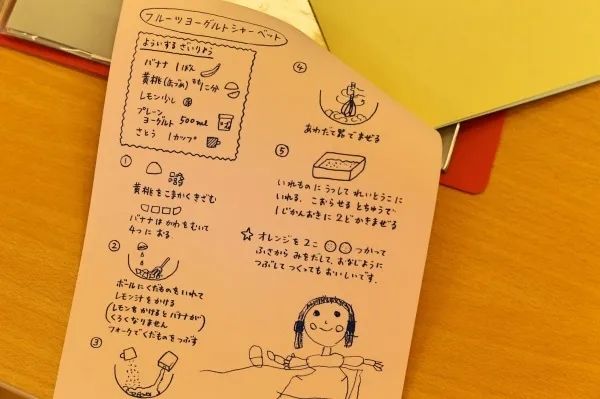 フルーツヨーグルトシャーベット
よういするざいりょう
バナナ 1ぽん
黄桃(缶づめ) もも1/2こ分
レモン少し
プレーン
ヨーグルト 500ml
さとう 1カップ
①
黄桃をこまかくきざむ
バナナはかわをむいて
4つにおる
②
ボールにくだものをいれて
レモン汁をかける
(レモンをかけるとバナナが
くろくなりません)
フォークでくだものをつぶす
③
④
あわたて器でまぜる
⑤
いれものにうつしてれいとうこに
いれる。こおらせるとちゅうで
1じかんおきに2どかきまぜる
☆ オレンジを2こ つかって
ふさからみをだして、おなじように
つぶしてつくってもおいしいです.